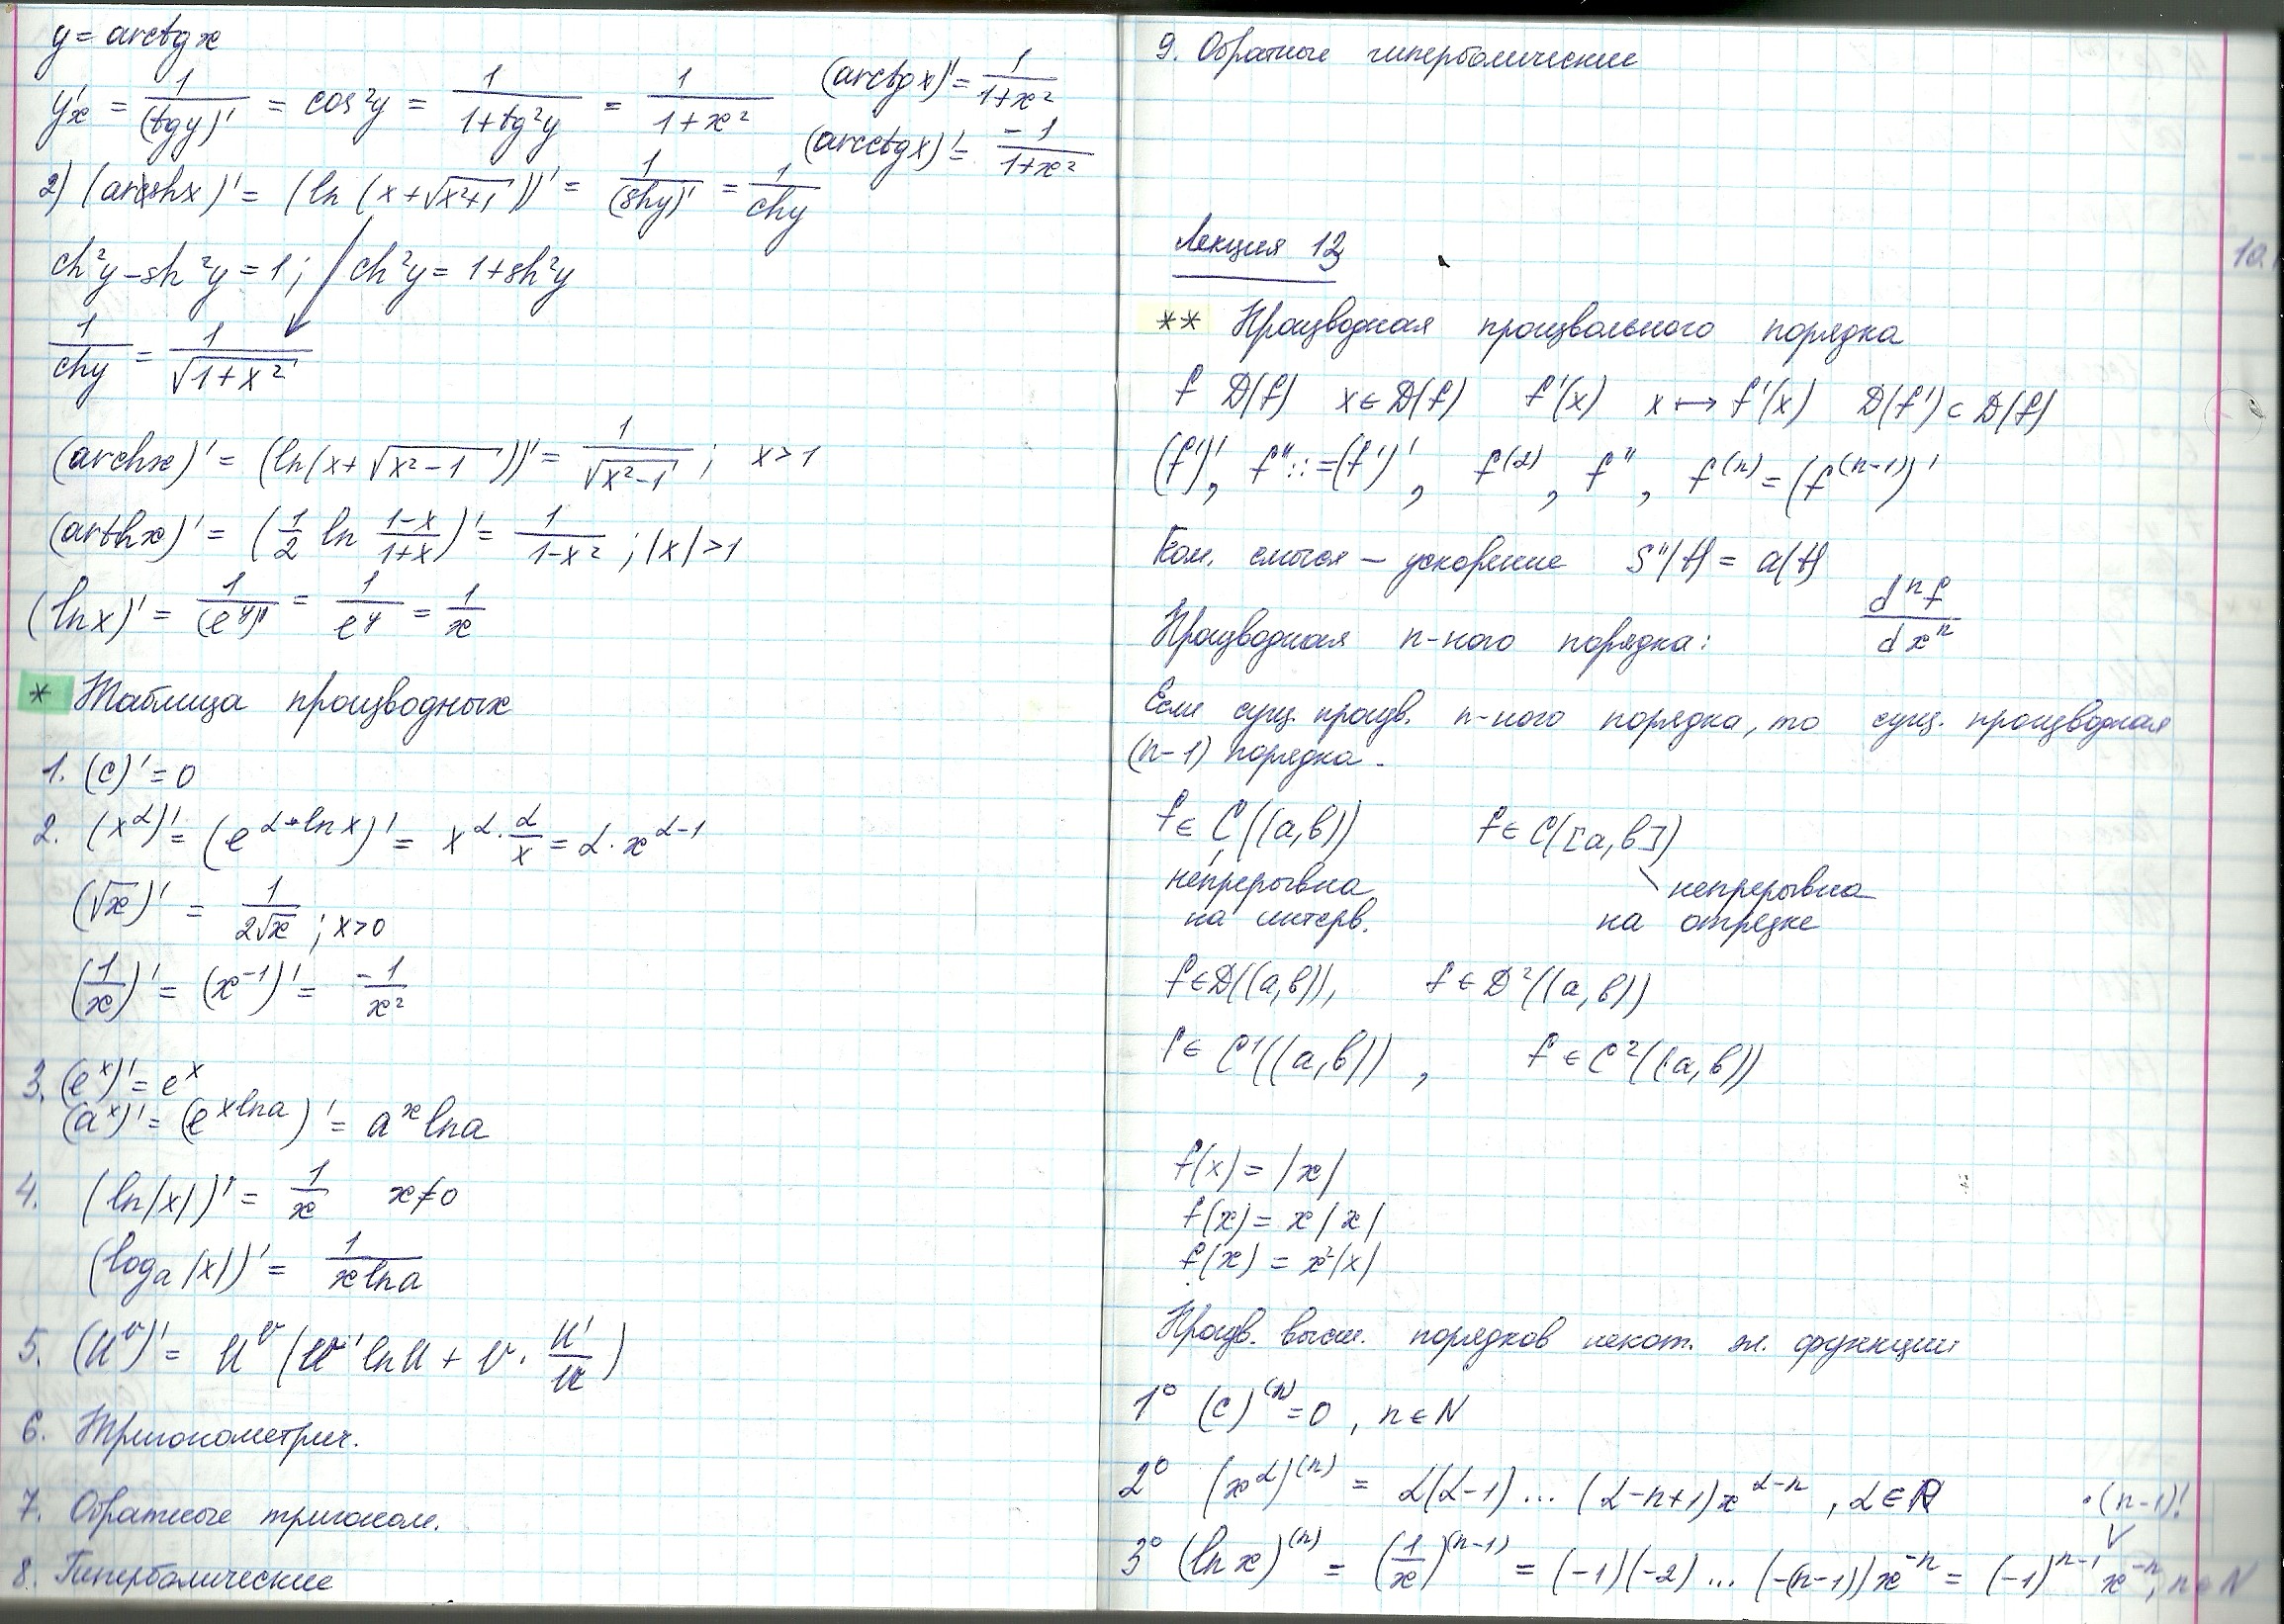 y = arctg x
y'x = 1/(tg y)' = cos²y = 1/(1+tg²y) = 1/(1+x²)   (arctg x)' = 1/(1+x²)
(arcctg x)' = -1/(1+x²)
2) (arcshx)' = (ln(x+√(x²+1)))' = 1/(shy)' = 1/chy
ch²y - sh²y = 1; ch²y = 1+sh²y
1/chy = 1/√(1+x²)
(archx)' = (ln(x+√(x²-1)))' = 1/√(x²-1); x>1
(arthx)' = (1/2 ln (1-x)/(1+x))' = 1/(1-x²); |x|>1
(lnx)' = 1/(e^y)' = 1/e^y = 1/x
* Таблица производных
1. (c)' = 0
2. (x^α)' = (e^(α·lnx))' = x^α · α/x = α·x^(α-1)
(√x)' = 1/(2√x); x>0
(1/x)' = (x^-1)' = -1/x²
3. (e^x)' = e^x
(a^x)' = (e^(xlna))' = a^x lna
4. (ln|x|)' = 1/x   x≠0
(log_a|x|)' = 1/(x lna)
5. (u^v)' = u^v (v' lnu + v · u'/u)
6. Тригонометрич.
7. Обратные тригоном.
8. Гиперболические
9. Обратные гиперболические
Лекция 13
** Производная произвольного порядка
f D(f) x∈D(f) f'(x) x ↦ f'(x) D(f') ⊂ D(f)
(f')', f'' ::= (f')', f^(2), f'', f^(n) = (f^(n-1))'
смысл — ускорение S''(t) = a(t)
Производная n-ного порядка: d^n f/dx^n
Если сущ. произв. n-ного порядка, то сущ. производная
(n-1) порядка.
f∈C((a,b))   f∈C([a,b])
непрерывна   непрерывна
на интерв.   на отрезке
f∈D((a,b)), f∈D²((a,b))
f∈C¹((a,b)), f∈C²((a,b))
f(x) = |x|
f(x) = x|x|
f(x) = x²|x|
Произв. высш. порядков некот. эл. функции
1° (c)^(n) = 0, n∈N
2° (x^α)^(n) = α(α-1)...(α-n+1)x^(α-n), α∈R
·(n-1)!
3° (lnx)^(n) = (1/x)^(n-1) = (-1)(-2)...(-(n-1))x^-n = (-1)^(n-1) x^-n, n∈N
10.